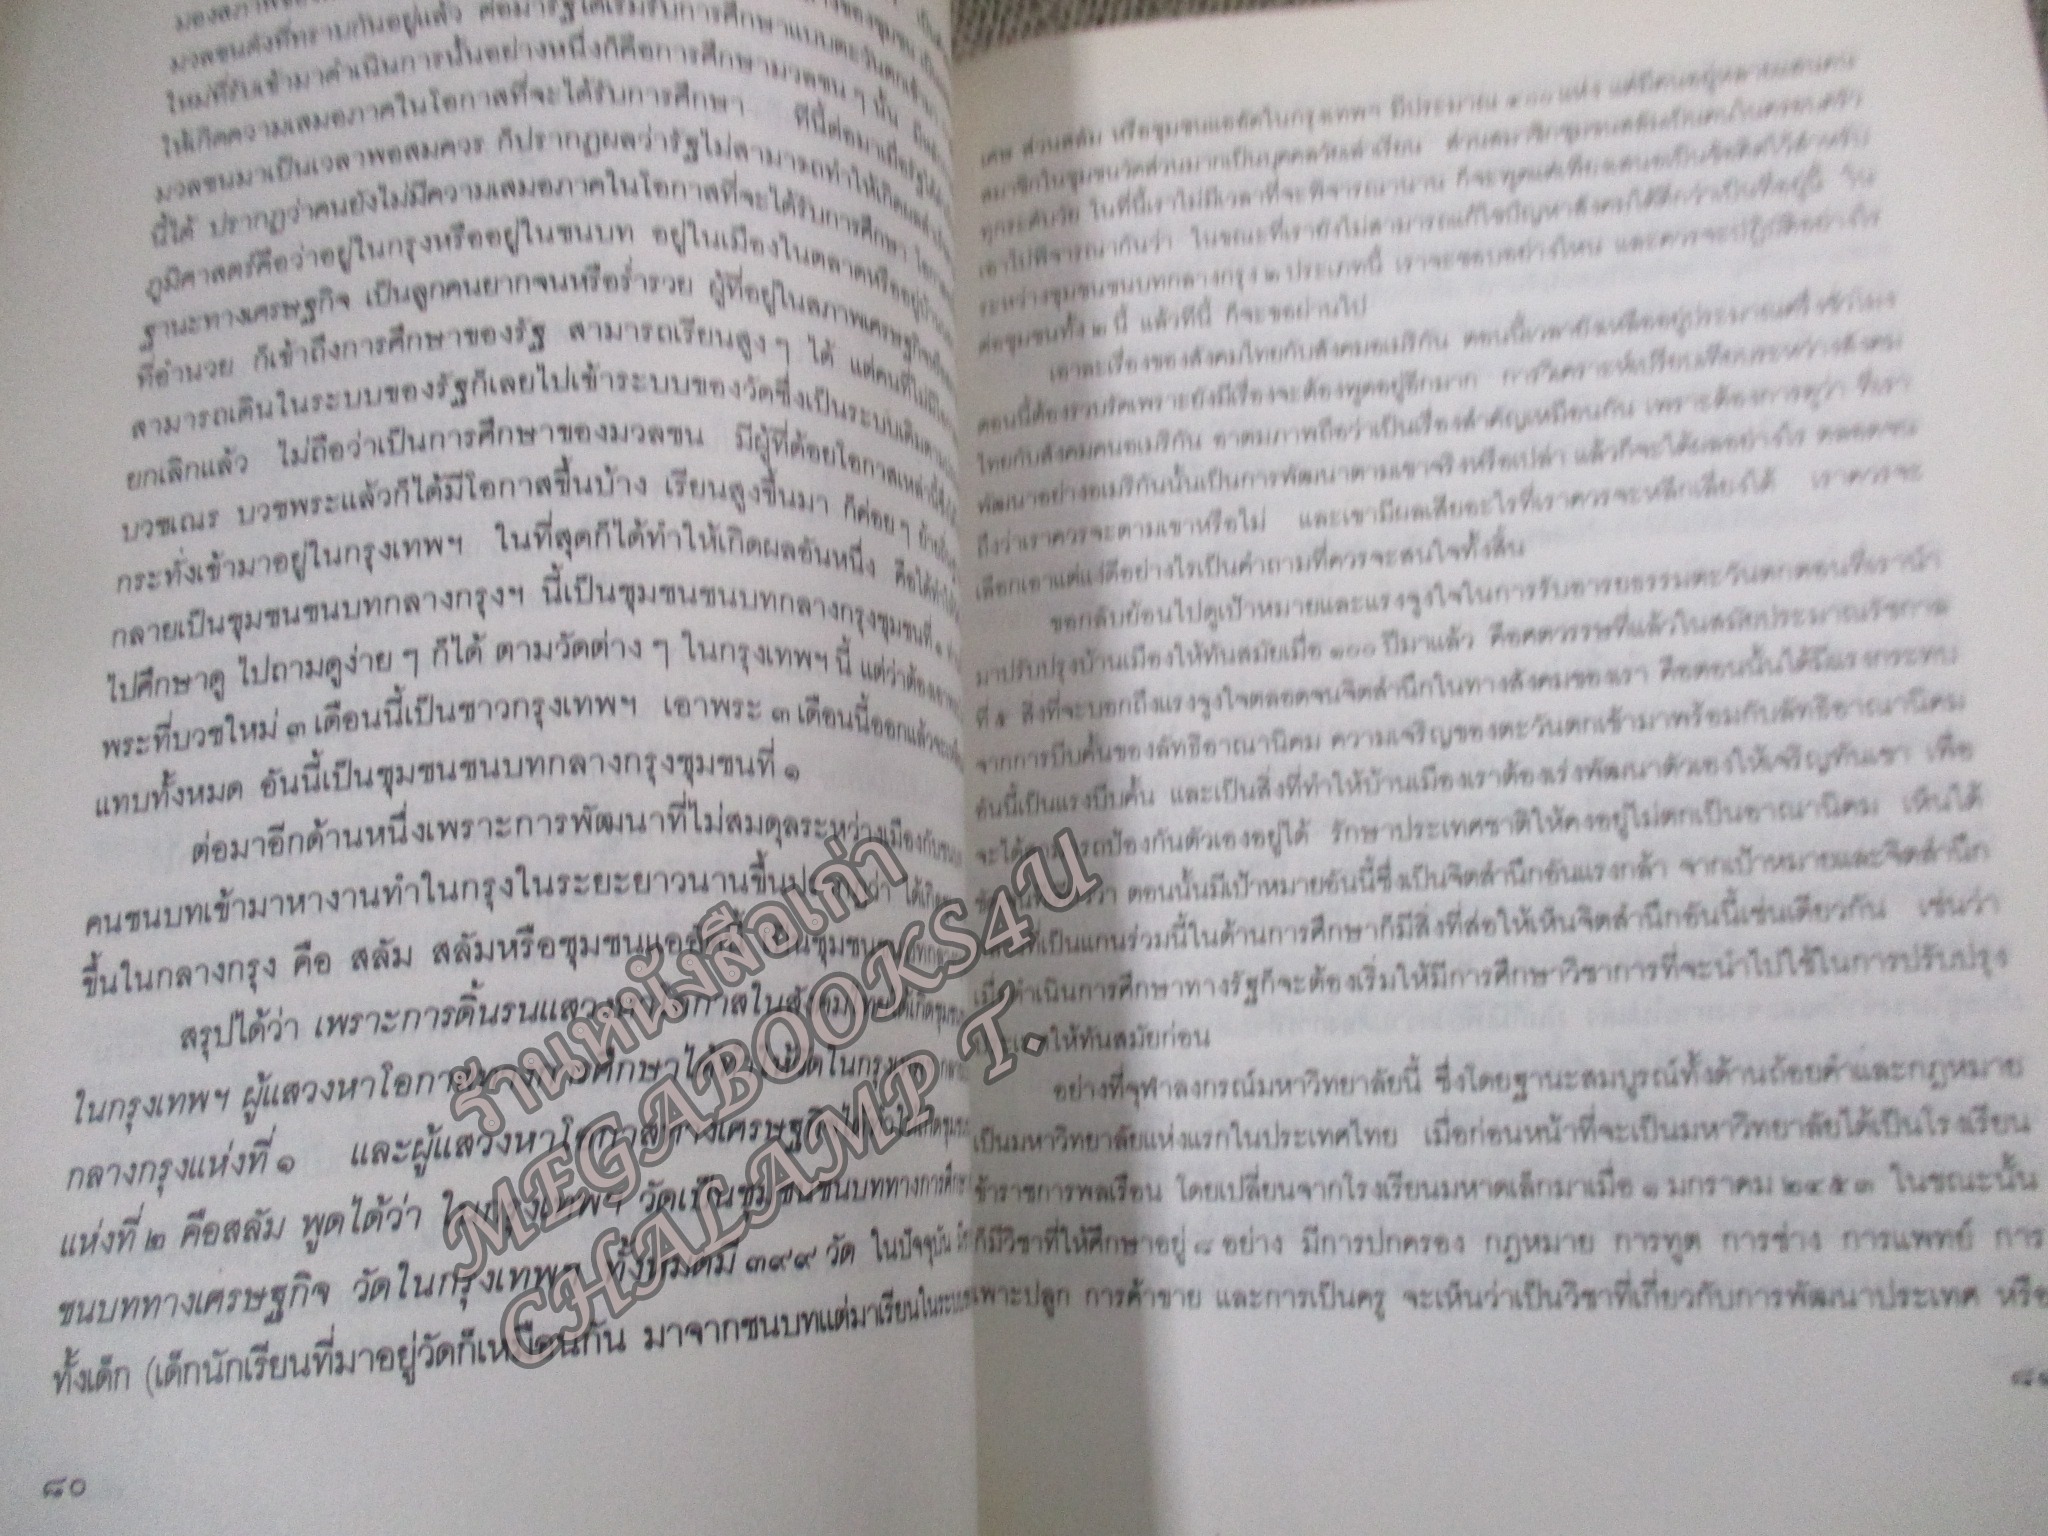 มวลชนดังที่ทราบกันอยู่แล้ว ต่อมารัฐได้เริ่มรับการศึกษาแบบตะวันตกเข้ามา
ใหม่ที่รับเข้ามาดำเนินการนั้นอย่างหนึ่งก็คือการศึกษามวลชน ๆ นั้น
ให้เกิดความเสมอภาคในโอกาสที่จะได้รับการศึกษา ทีนี้ต่อมาเมื่อรัฐได้
มวลชนมาเป็นเวลาพอสมควร ก็ปรากฏผลว่ารัฐไม่สามารถทำให้เกิดผลสำเร็จ
นี้ได้ ปรากฏว่าคนยังไม่มีความเสมอภาคในโอกาสที่จะได้รับการศึกษา
ภูมิศาสตร์คือว่าอยู่ในกรุงหรืออยู่ในชนบท อยู่ในเมืองในตลาดหรืออยู่บ้านนอก
ฐานะทางเศรษฐกิจ เป็นลูกคนยากจนหรือร่ำรวย ผู้ที่อยู่ในสภาพเศรษฐกิจ
ที่อำนวย ก็เข้าถึงการศึกษาของรัฐ สามารถเรียนสูง ๆ ได้ แต่คนที่ไม่มี
สามารถเดินในระบบของรัฐก็เลยไปเข้าระบบของวัดซึ่งเป็นระบบเดิม
ยกเลิกแล้ว ไม่ถือว่าเป็นการศึกษาของมวลชน มีผู้ที่ด้อยโอกาสเหล่านี้
บวชเณร บวชพระแล้วก็ได้มีโอกาสขึ้นบ้าง เรียนสูงขึ้นมา ก็ค่อย ๆ
กระทั่งเข้ามาอยู่ในกรุงเทพฯ ในที่สุดก็ได้ทำให้เกิดผลอันหนึ่ง คือได้ทำให้
กลายเป็นชุมชนชนบทกลางกรุงฯ นี้เป็นชุมชนชนบทกลางกรุงชุมชนที่ ๑
ไปศึกษาดู ไปถามดูง่าย ๆ ก็ได้ ตามวัดต่าง ๆ ในกรุงเทพฯ นี้ แต่ว่าต้องเอา
พระที่บวชใหม่ ๓ เดือนนี้เป็นชาวกรุงเทพฯ เอาพระ ๓ เดือนนี้ออกแล้วจะ
แทบทั้งหมด อันนี้เป็นชุมชนชนบทกลางกรุงชุมชนที่ ๑
ต่อมาอีกด้านหนึ่งเพราะการพัฒนาที่ไม่สมดุลระหว่างเมืองกับชนบท
คนชนบทเข้ามาหางานทำในกรุงในระยะยาวนานขึ้น ได้เกิด
ขึ้นในกลางกรุง คือ สลัม สลัมหรือชุมชนแออัดนี้ เป็นชุมชน
สรุปได้ว่า เพราะการดิ้นรนแสวงหาโอกาสในสังคมไทยได้เกิดชุมชน
ในกรุงเทพฯ ผู้แสวงหาโอกาสทางการศึกษาได้ทำให้วัดในกรุงเทพฯ
กลางกรุงแห่งที่ ๑ และผู้แสวงหาโอกาสทางเศรษฐกิจได้ทำให้เกิดชุมชน
แห่งที่ ๒ คือสลัม พูดได้ว่า ในกรุงเทพฯ วัดเป็นชุมชนชนบททางการศึกษา
ชนบททางเศรษฐกิจ วัดในกรุงเทพฯ ทั้งหมดมี ๓๙๙ วัด ในปัจจุบัน
ทั้งเด็ก (เด็กนักเรียนที่มาอยู่วัดก็เหมือนกัน มาจากชนบทแต่มาเรียนในระบบ
๘๐
เศษ ส่วนสลัม หรือชุมชนแออัดในกรุงเทพฯ มีประมาณ ๕๐๐ แห่ง แต่มีคนอยู่หลายแสนคน
สมาชิกในชุมชนวัดส่วนมากเป็นบุคคลวัยเล่าเรียน ส่วนสมาชิกชุมชนสลัมเป็นคนในครอบครัว
ทุกระดับวัย ในที่นี้เราไม่มีเวลาที่จะพิจารณานาน ก็จะพูดแต่เพียงเสนอเป็นข้อคิดไว้สำหรับ
เอาไปพิจารณากันว่า ในขณะที่เรายังไม่สามารถแก้ไขปัญหาสังคมได้ดีกว่าเป็นที่อยู่นี้ ใน
ระหว่างชุมชนชนบทกลางกรุง ๒ ประเภทนี้ เราจะชอบอย่างไหน และควรจะปฏิบัติอย่างไร
ต่อชุมชนทั้ง ๒ นี้ แล้วทีนี้ ก็จะขอผ่านไป
เอาละเรื่องของสังคมไทยกับสังคมอเมริกัน ตอนนี้เวลายังเหลืออยู่ประมาณครึ่งชั่วโมง
ตอนนี้ต้องรวบรัดเพราะยังมีเรื่องจะต้องพูดอยู่อีกมาก การวิเคราะห์เปรียบเทียบระหว่างสังคม
ไทยกับสังคมคนอเมริกัน อาตมภาพถือว่าเป็นเรื่องสำคัญเหมือนกัน เพราะต้องการดูว่า ที่เรา
พัฒนาอย่างอเมริกันนั้นเป็นการพัฒนาตามเขาจริงหรือเปล่า แล้วก็จะได้ผลอย่างไร ตลอดจน
ถึงว่าเราควรจะตามเขาหรือไม่ และเขามีผลเสียอะไรที่เราควรจะหลีกเลี่ยงได้ เราควรจะ
เลือกเอาแต่แง่ดีอย่างไรเป็นคำถามที่ควรจะสนใจทั้งสิ้น
ขอกลับย้อนไปดูเป้าหมายและแรงจูงใจในการรับอารยธรรมตะวันตกตอนที่เรานำ
มาปรับปรุงบ้านเมืองให้ทันสมัยเมื่อ ๑๐๐ ปีมาแล้ว คือศตวรรษที่แล้วในสมัยประมาณรัชกาล
ที่ ๕ สิ่งที่จะบอกถึงแรงจูงใจตลอดจนจิตสำนึกในทางสังคมของเรา คือตอนนั้นได้มีแรงกระทบ
จากการบีบคั้นของลัทธิอาณานิคม ความเจริญของตะวันตกเข้ามาพร้อมกับลัทธิอาณานิคม
อันนี้เป็นแรงบีบคั้น และเป็นสิ่งที่ทำให้บ้านเมืองเราต้องเร่งพัฒนาตัวเองให้เจริญทันเขา เพื่อ
จะได้สามารถป้องกันตัวเองอยู่ได้ รักษาประเทศชาติให้คงอยู่ไม่ตกเป็นอาณานิคม เห็นได้
ว่า ตอนนั้นมีเป้าหมายอันนี้ซึ่งเป็นจิตสำนึกอันแรงกล้า จากเป้าหมายและจิตสำนึก
ที่เป็นแกนร่วมนี้ในด้านการศึกษาก็มีสิ่งที่ส่อให้เห็นจิตสำนึกอันนี้เช่นเดียวกัน เช่นว่า
เมื่อดำเนินการศึกษาทางรัฐก็จะต้องเริ่มให้มีการศึกษาวิชาการที่จะนำไปใช้ในการปรับปรุง
ประเทศให้ทันสมัยก่อน
อย่างที่จุฬาลงกรณ์มหาวิทยาลัยนี้ ซึ่งโดยฐานะสมบูรณ์ทั้งด้านถ้อยคำและกฎหมาย
เป็นมหาวิทยาลัยแห่งแรกในประเทศไทย เมื่อก่อนหน้าที่จะเป็นมหาวิทยาลัยได้เป็นโรงเรียน
ข้าราชการพลเรือน โดยเปลี่ยนจากโรงเรียนมหาดเล็กมาเมื่อ ๑ มกราคม ๒๔๕๓ ในขณะนั้น
ก็มีวิชาที่ให้ศึกษาอยู่ ๘ อย่าง มีการปกครอง กฎหมาย การทูต การช่าง การแพทย์ การ
เพาะปลูก การค้าขาย และการเป็นครู จะเห็นว่าเป็นวิชาที่เกี่ยวกับการพัฒนาประเทศ หรือ
๘๑
ร้านหนังสือเก่า
MEGABOOKS4U
CHALAMP T.